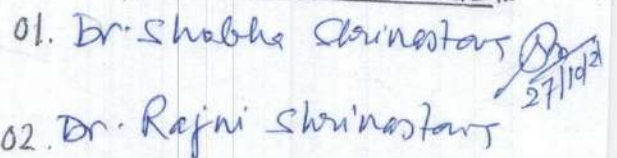 01. Dr. Shobha Shrinastava 27/10/21
02. Dr. Rajni Shrinastava